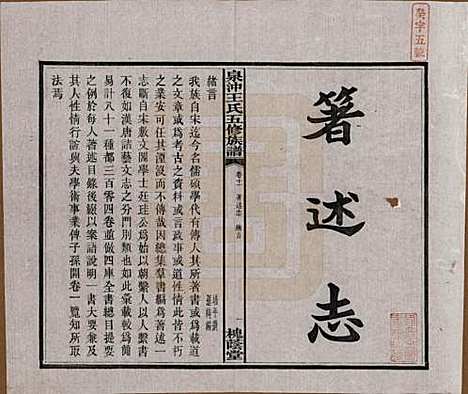 癸字五號
箸述志
泉沖王氏五修族譜
卷十一 著述志 緒言
一
槐蔭堂
緒言
我族自宋迄今名儒碩學代有傳人其所著書或爲載道
之文章或爲考古之資料或言政事或道性情皆此不朽
之業安可任其湮沒而不彰也因總集羣書編爲著述一
志斷自宋數文閣學士廷珪公爲始以朝繫人以人繫書
不復如漢唐諸藝文志之分門別類也如此彙載較爲簡
易計八十一種都三百零四卷並倣四庫全書總目提要
之例於每人著述目錄後綴以案語說明一書大要及其
人性情行誼與夫學術事業俾子孫開卷一覽知所取
法焉